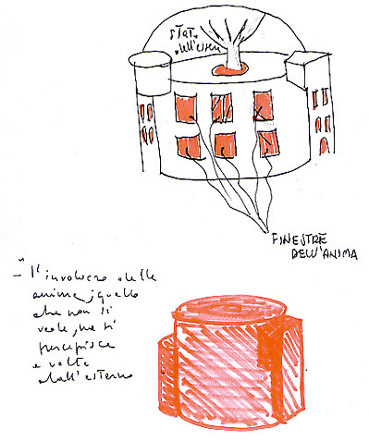 STAT.
dell'essere
FINESTRE
DELL'ANIMA
"
– l'involucro delle
anime, quello
che non si
vede, ma si
percepisce
a volte
dall'esterno